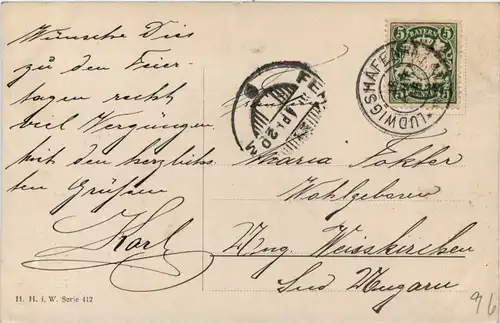 Wünsche Dir
zu den Feier-
tagen recht
viel Vergnügen
Mit den herzlichs-
ten Grüßen
Karl
H. H. i. W. Serie 412
5 BAYERN 5
LUDWIGSHAFEN
FEH
APR 20
Fräulein
Maria Tokter
Wohlgeboren
Ung. Weisskirchen
Süd Ungarn
96